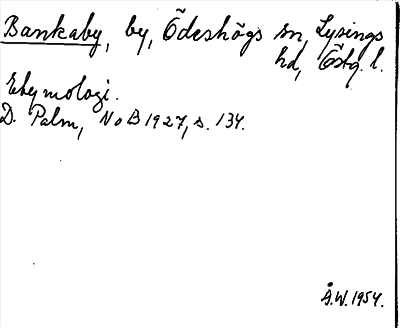 Bankaby, by, Ödeshögs sn, Lysings
hd, Östg. l.
Etymologi.
D. Palm, NoB 1927, s. 134.
Å.W. 1954.